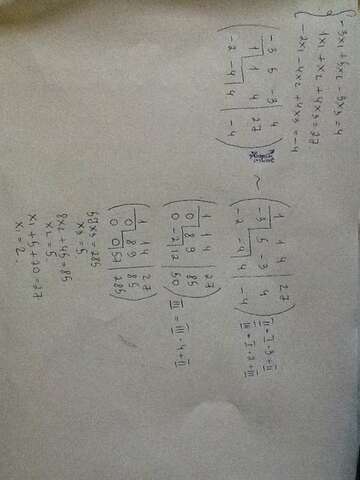 -3x1 + 5x2 - 3x3 = 4
1x1 + x2 + 4x3 = 27
-2x1 - 4x2 + 4x3 = -4
-3 5 -3 4
1 1 4 27
-2 -4 4 -4
~
1 1 4 27
-3 5 -3 4
-2 -4 4 -4
II = I·3 + II
III = I·2 + III
1 1 4 27
0 8 9 85
0 -2 12 50
III = III·4 + II
1 1 4 27
0 8 9 85
0 0 57 285
57x3 = 285
x3 = 5
8x2 + 45 = 85
x2 = 5
x1 + 5 + 20 = 27
x1 = 2.